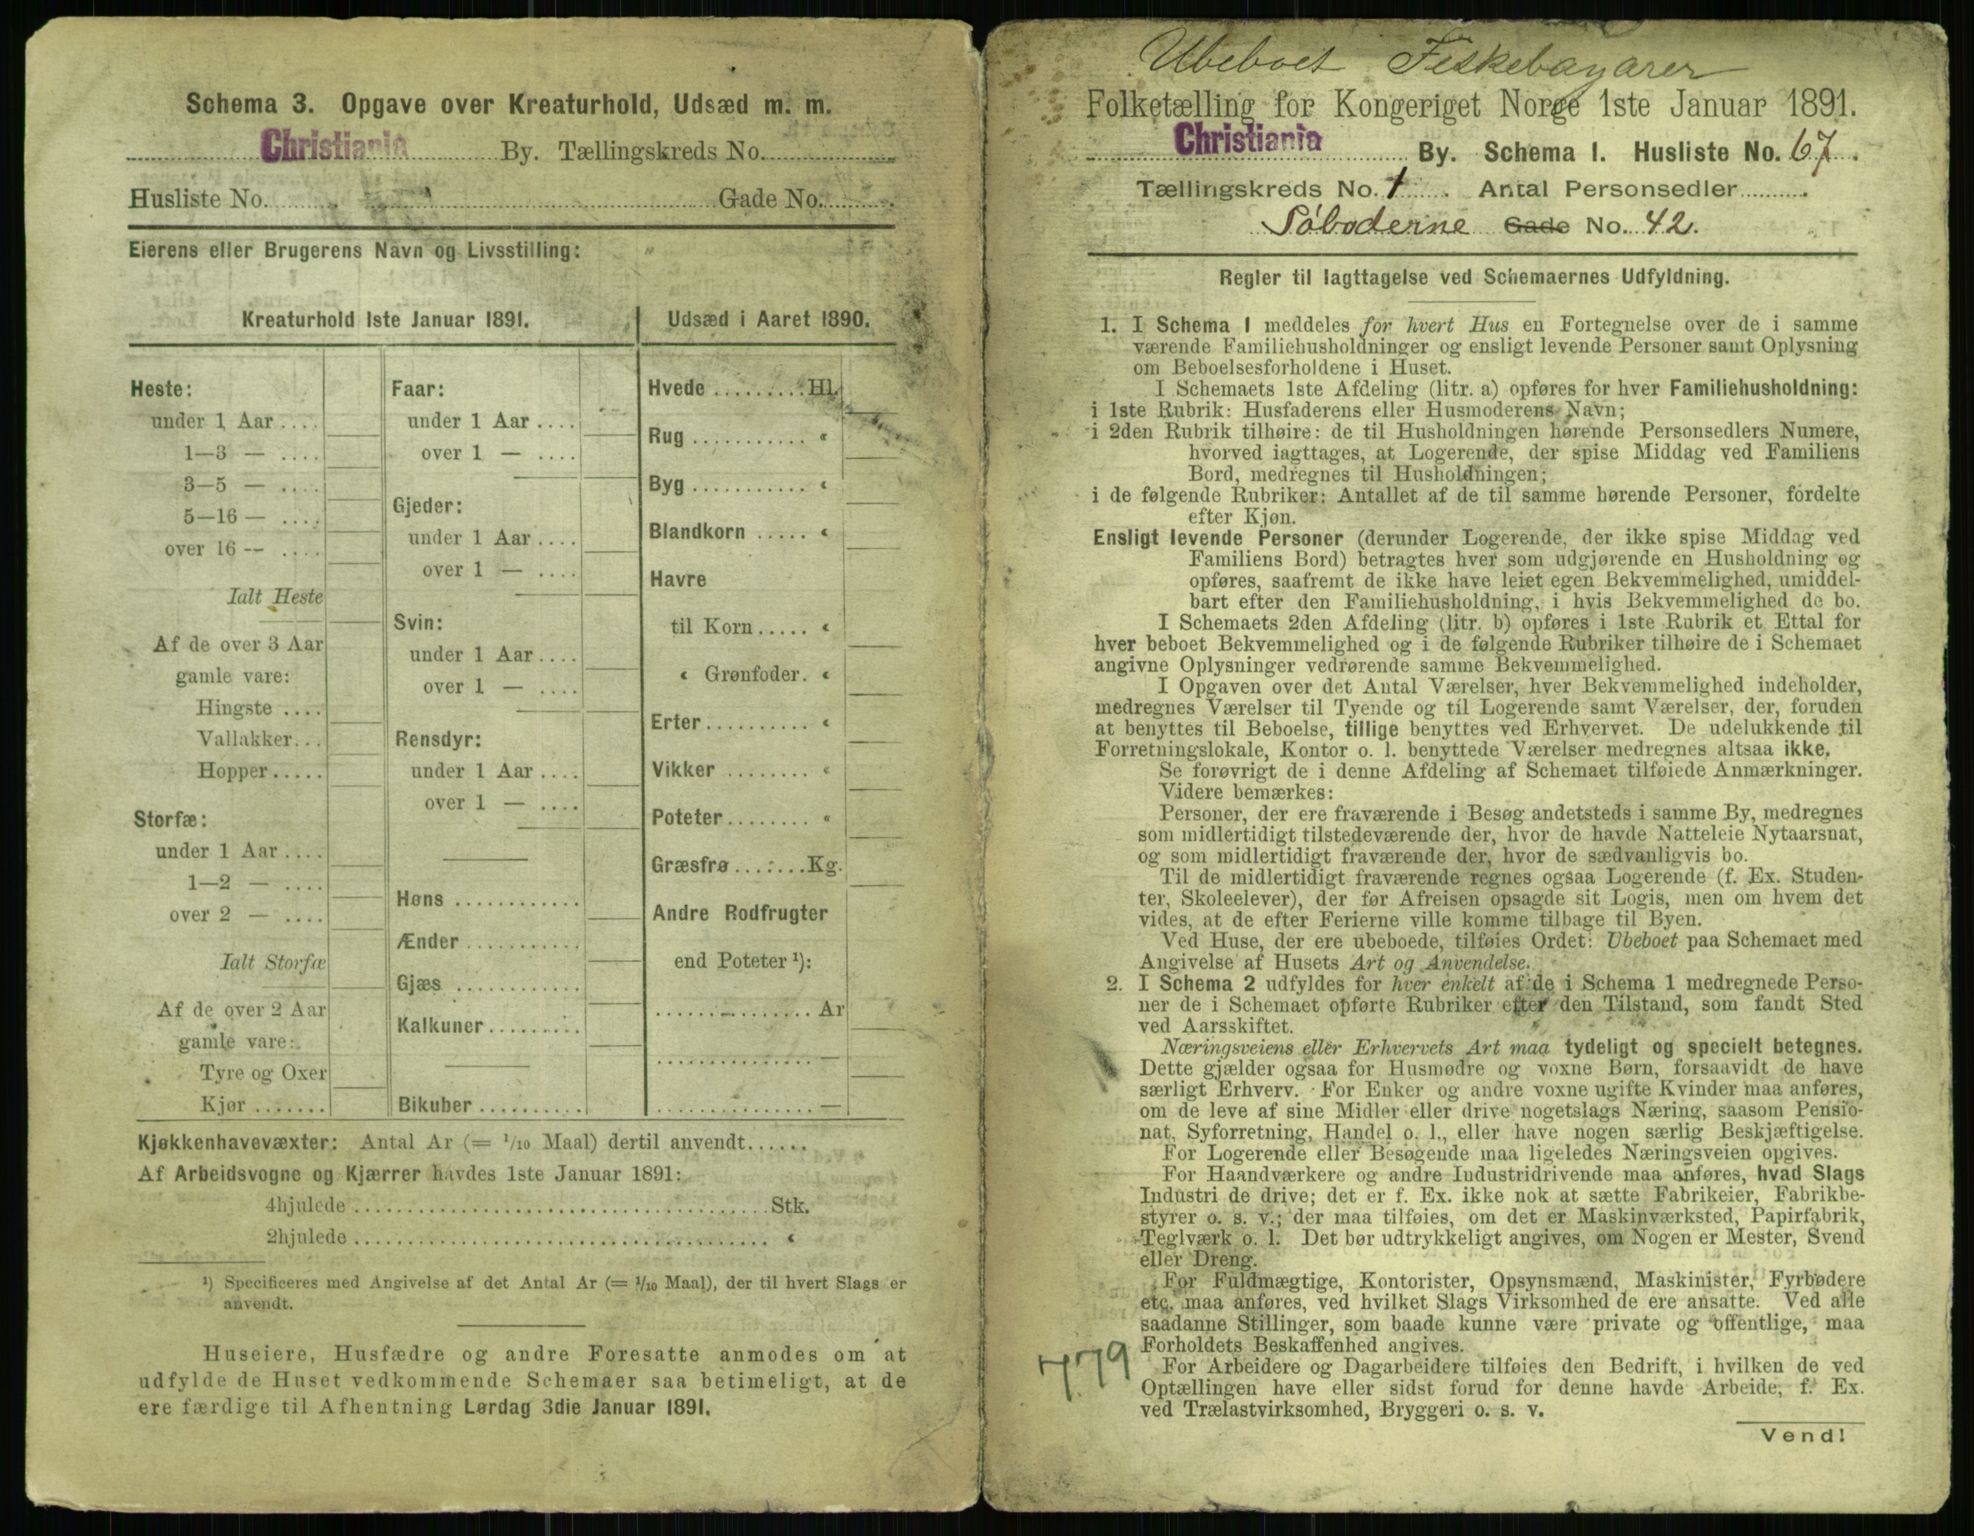 Schema 3. Opgave over Kreaturhold, Udsæd m. m.
Christiania By. Tællingskreds No.
Husliste No. Gade No.
Eierens eller Brugerens Navn og Livsstilling:
Kreaturhold 1ste Januar 1891.
Udsæd i Aaret 1890.
Heste:
under 1 Aar ....
1—3 — ....
3—5 — ....
5—16 — ....
over 16 — ....
Ialt Heste
Af de over 3 Aar
gamle vare:
Hingste ....
Vallakker...
Hopper.....
Storfæ:
under 1 Aar ....
1—2 — ....
over 2 — ....
Ialt Storfæ
Af de over 2 Aar
gamle vare:
Tyre og Oxer
Kjør .......
Faar:
under 1 Aar ....
over 1 — ....
Gjeder:
under 1 Aar ....
over 1 — ....
Svin:
under 1 Aar ....
over 1 — ....
Rensdyr:
under 1 Aar ....
over 1 — ....
Høns ............
Ænder ...........
Gjæs ............
Kalkuner.........
Bikuber..........
Hvede .........Hl.
Rug ........... "
Byg ........... "
Blandkorn ..... "
Havre
til Korn..... "
" Grønfoder. "
Erter.......... "
Vikker ........ "
Poteter........ "
Græsfrø.......Kg.
Andre Rodfrugter
end Poteter ¹):
............... Ar
............... —
............... —
Kjøkkenhavevæxter: Antal Ar (= 1/10 Maal) dertil anvendt......
Af Arbeidsvogne og Kjærrer havdes 1ste Januar 1891:
4hjulede .......................................Stk.
2hjulede ....................................... "
¹) Specificeres med Angivelse af det Antal Ar (= 1/10 Maal), der til hvert Slags er
anvendt.
Huseiere, Husfædre og andre Foresatte anmodes om at
udfylde de Huset vedkommende Schemaer saa betimeligt, at de
ere færdige til Afhentning Lørdag 3die Januar 1891.
Ubeboet Fiskebazarer
Folketælling for Kongeriget Norge 1ste Januar 1891.
Christiania By. Schema 1. Husliste No. 67.
Tællingskreds No. 1. Antal Personsedler.
Søboderne Gade No. 42.
Regler til Iagttagelse ved Schemaernes Udfyldning.
1. I Schema 1 meddeles for hvert Hus en Fortegnelse over de i samme
værende Familiehusholdninger og ensligt levende Personer samt Oplysning
om Beboelsesforholdene i Huset.
I Schemaets 1ste Afdeling (litr. a) opføres for hver Familiehusholdning:
i 1ste Rubrik: Husfaderens eller Husmoderens Navn;
i 2den Rubrik tilhøire: de til Husholdningen hørende Personsedlers Numere,
hvorved iagttages, at Logerende, der spise Middag ved Familiens
Bord, medregnes til Husholdningen;
i de følgende Rubriker: Antallet af de til samme hørende Personer, fordelte
efter Kjøn.
Ensligt levende Personer (derunder Logerende, der ikke spise Middag ved
Familiens Bord) betragtes hver som udgjørende en Husholdning og
opføres, saafremt de ikke have leiet egen Bekvemmelighed, umiddel-
bart efter den Familiehusholdning, i hvis Bekvemmelighed de bo.
I Schemaets 2den Afdeling (litr. b) opføres i 1ste Rubrik et Ettal for
hver beboet Bekvemmelighed og i de følgende Rubriker tilhøire de i Schemaet
angivne Oplysninger vedrørende samme Bekvemmelighed.
I Opgaven over det Antal Værelser, hver Bekvemmelighed indeholder,
medregnes Værelser til Tyende og til Logerende samt Værelser, der, foruden
at benyttes til Beboelse, tillige benyttes ved Erhvervet. De udelukkende til
Forretningslokale, Kontor o. l. benyttede Værelser medregnes altsaa ikke.
Se forøvrigt de i denne Afdeling af Schemaet tilføiede Anmærkninger.
Videre bemærkes:
Personer, der ere fraværende i Besøg andetsteds i samme By, medregnes
som midlertidigt tilstedeværende der, hvor de havde Natteleie Nytaarsnat,
og som midlertidigt fraværende der, hvor de sædvanligvis bo.
Til de midlertidigt fraværende regnes ogsaa Logerende (f. Ex. Studen-
ter, Skoleelever), der før Afreisen opsagde sit Logis, men om hvem det
vides, at de efter Ferierne ville komme tilbage til Byen.
Ved Huse, der ere ubeboede, tilføies Ordet: Ubeboet paa Schemaet med
Angivelse af Husets Art og Anvendelse.
2. I Schema 2 udfyldes for hver enkelt af de i Schema 1 medregnede Perso-
ner de i Schemaet opførte Rubriker efter den Tilstand, som fandt Sted
ved Aarsskiftet.
Næringsveiens eller Erhvervets Art maa tydeligt og specielt betegnes.
Dette gjælder ogsaa for Husmødre og voxne Børn, forsaavidt de have
særligt Erhverv. For Enker og andre voxne ugifte Kvinder maa anføres,
om de leve af sine Midler eller drive nogetslags Næring, saasom Pensio-
nat, Syforretning, Handel o. l., eller have nogen særlig Beskjæftigelse.
For Logerende eller Besøgende maa ligeledes Næringsveien opgives.
For Haandværkere og andre Industridrivende maa anføres, hvad Slags
Industri de drive; det er f. Ex. ikke nok at sætte Fabrikeier, Fabrikbe-
styrer o. s. v.; der maa tilføies, om det er Maskinværksted, Papirfabrik,
Teglværk o. l. Det bør udtrykkeligt angives, om Nogen er Mester, Svend
eller Dreng.
For Fuldmægtige, Kontorister, Opsynsmænd, Maskinister, Fyrbødere
etc. maa anføres, ved hvilket Slags Virksomhed de ere ansatte. Ved alle
saadanne Stillinger, som baade kunne være private og offentlige, maa
Forholdets Beskaffenhed angives.
For Arbeidere og Dagarbeidere tilføies den Bedrift, i hvilken de ved
Optællingen have eller sidst forud for denne havde Arbeide, f. Ex.
ved Trælastvirksomhed, Bryggeri o. s. v.
779
Vend!